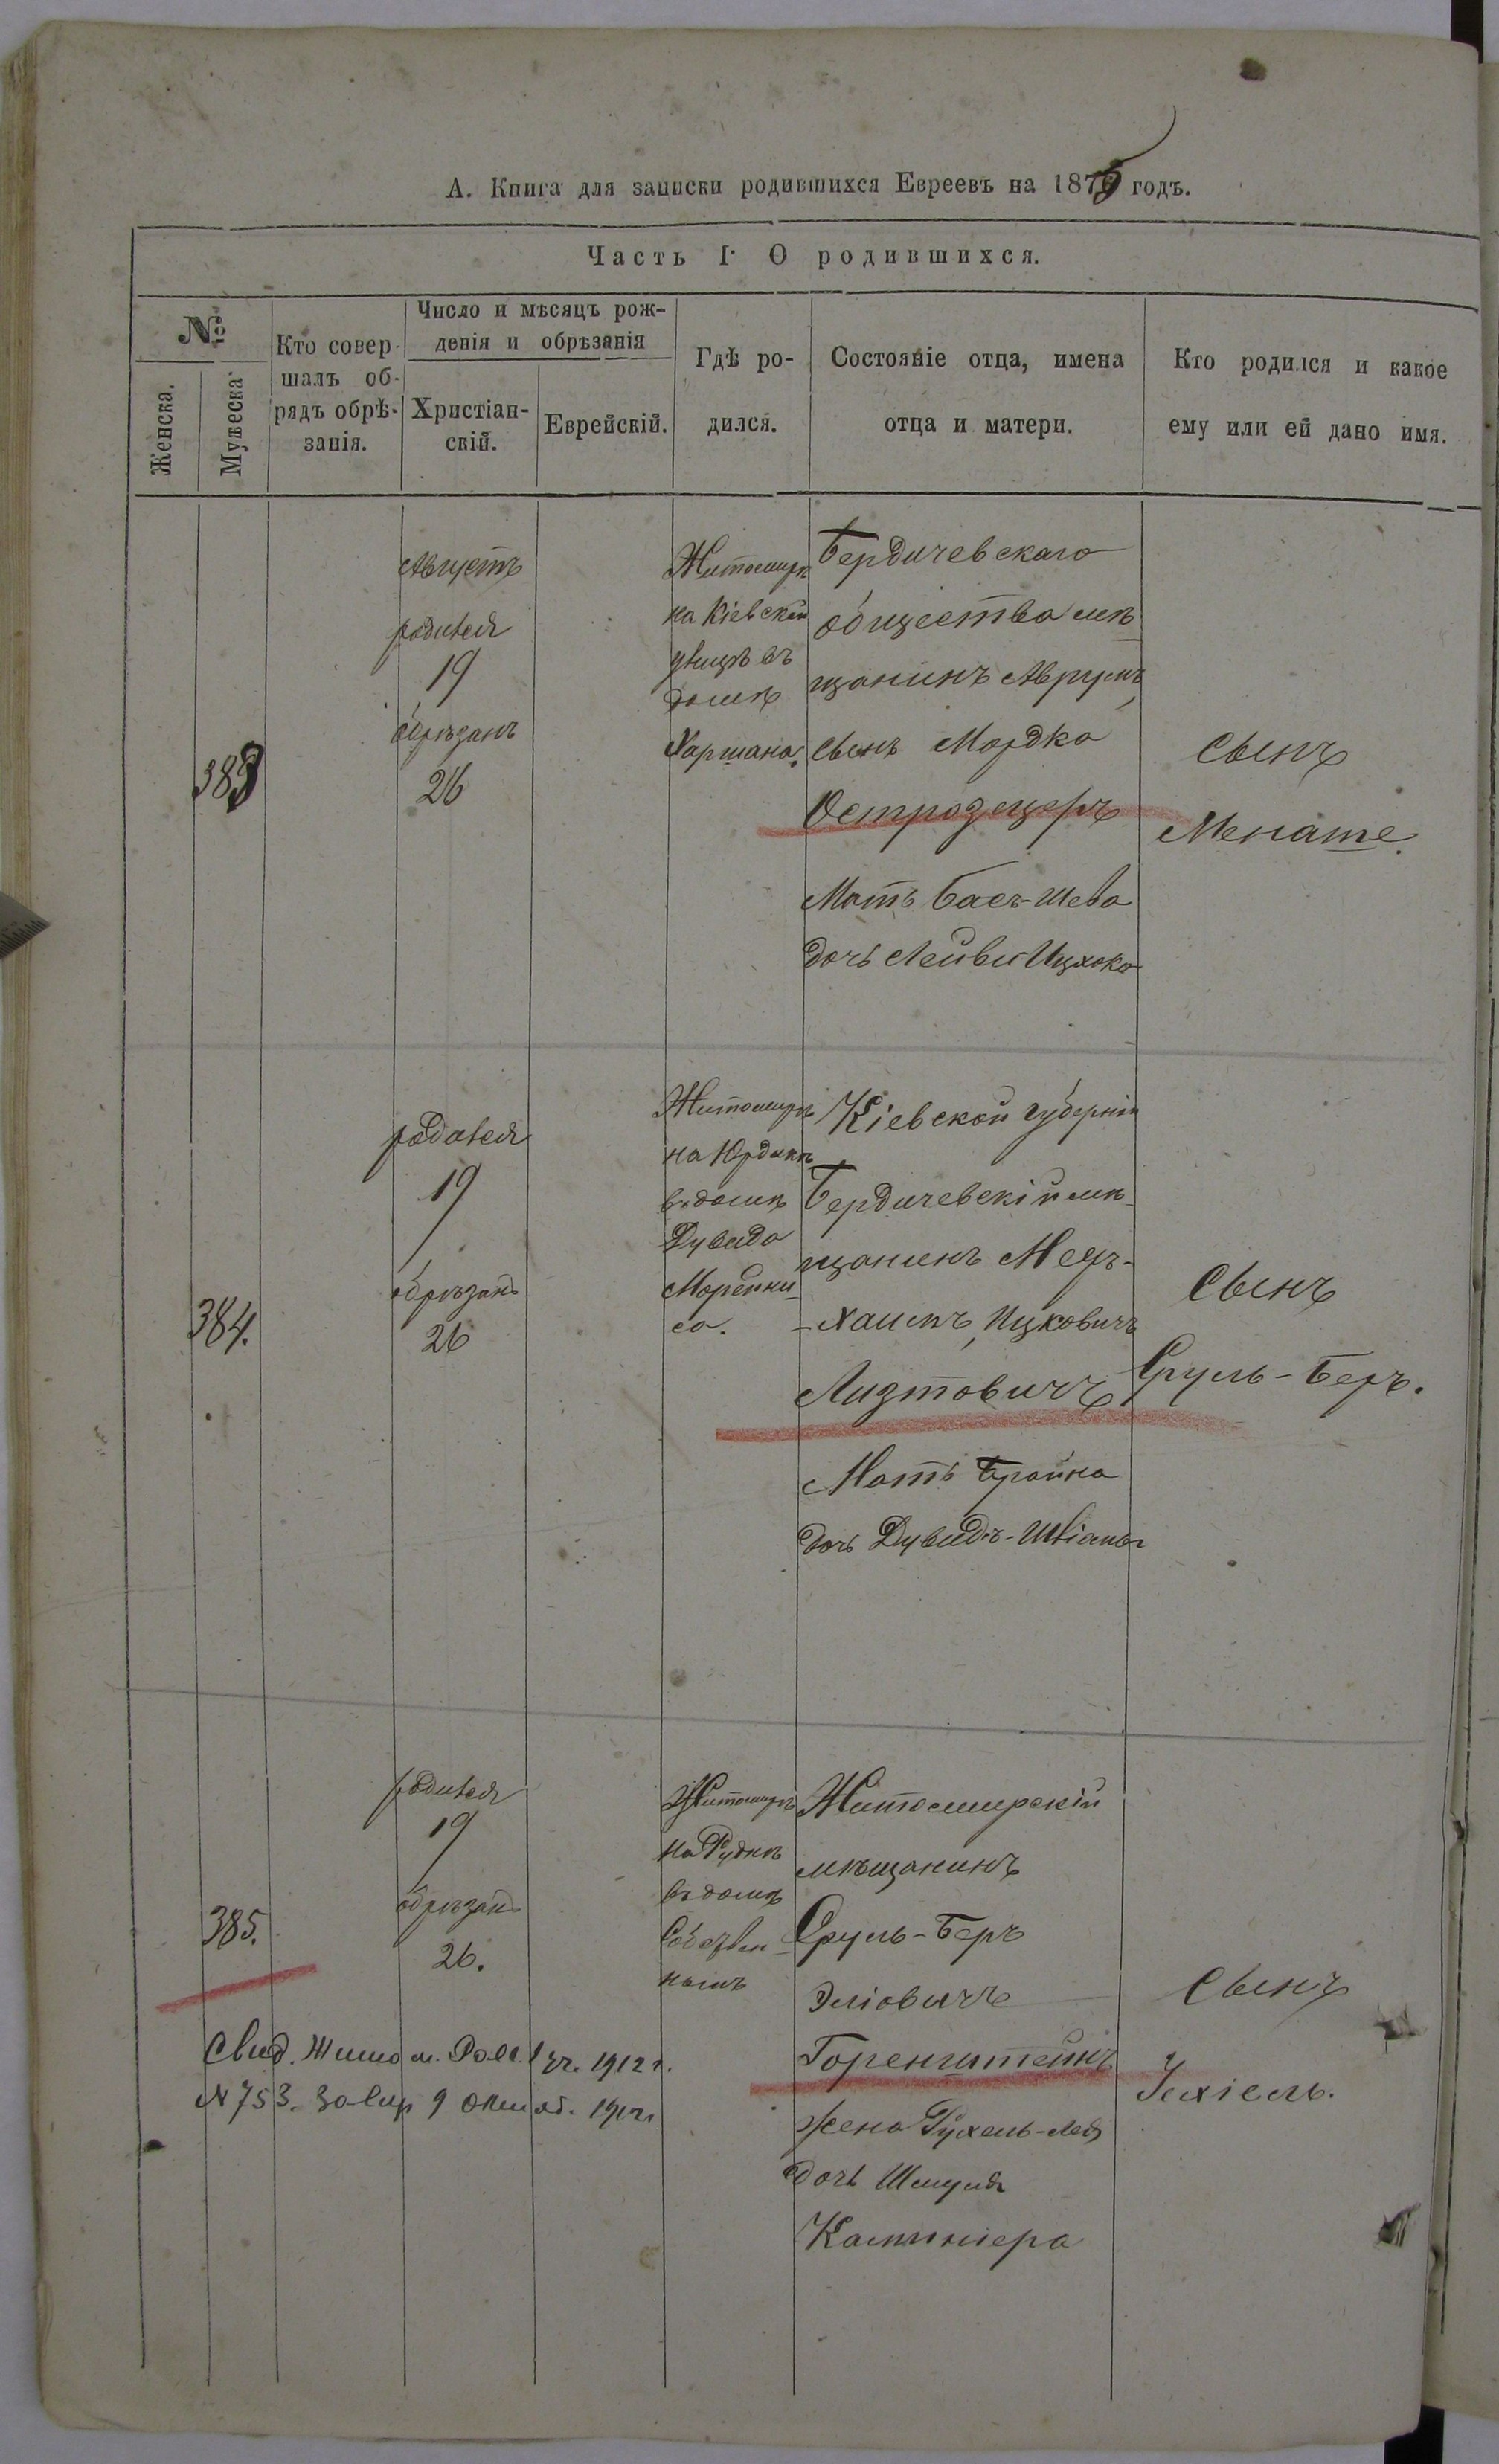 А. Книга для записки родившихся Евреевъ на 1875 годъ.
Часть I. О родившихся.
№
Женска.
Мужеска
Кто совер-
шалъ об-
рядъ обрѣ-
занія.
Число и мѣсяцъ рож-
денія и обрѣзанія
Христіан-
скій.
Еврейскій.
Гдѣ ро-
дился.
Состояніе отца, имена
отца и матери.
Кто родился и какое
ему или ей дано имя.
383
Августъ
родился
19
обрѣзанъ
26
Житомирѣ
на Кіевской
улицѣ въ
домѣ
Хармана.
Бердичевскаго
общества мѣ-
щанинъ Аврумъ
сынъ Мордка
Остразецеръ
Мать Бася-Шева
дочь Лейви Ицхока
сынъ
Менаше.
384.
родился
19
обрѣзанъ
26
Житомирѣ
на Юрдикѣ
въ домѣ
Дувида
са.
Кіевской губерніи
Бердичевскій мѣ-
щанинъ Мееръ-
-Хаимъ Ицковичъ
Мать Брайна
дочь Дувидъ-
сынъ
Сруль-Беръ.
385.
родился
19
обрѣзанъ
26.
Житомирѣ
на Рудкѣ
въ домѣ
Собствен-
номъ
Житомирскій
мѣщанинъ
Сруль-Беръ
Эліовичъ
Горенштейнъ
жена Рухель-Лея
дочь Шмуля
сынъ
Іехіель.
Свид. Житом. 1912 г.
N 753. 9 октяб. 1912 г.